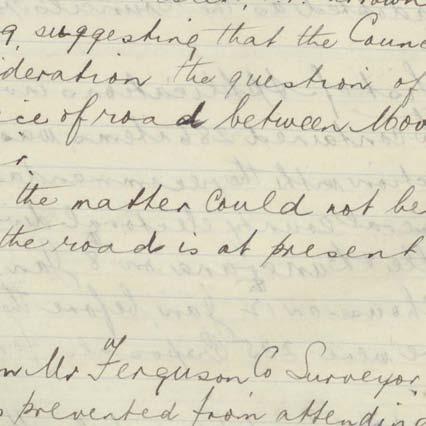 g, suggesting that the Counc
ideration the question of
ice of road between Mov
the matter could not be
the road is at present
n Mr Ferguson Co Surveyor,
s prevented from attending